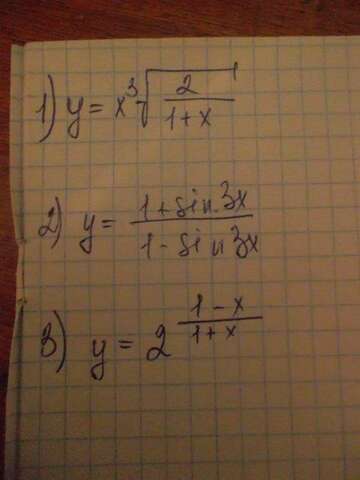 1) y = x ∛(2/(1+x))
2) y = (1+sin 3x)/(1-sin 3x)
3) y = 2^((1-x)/(1+x))